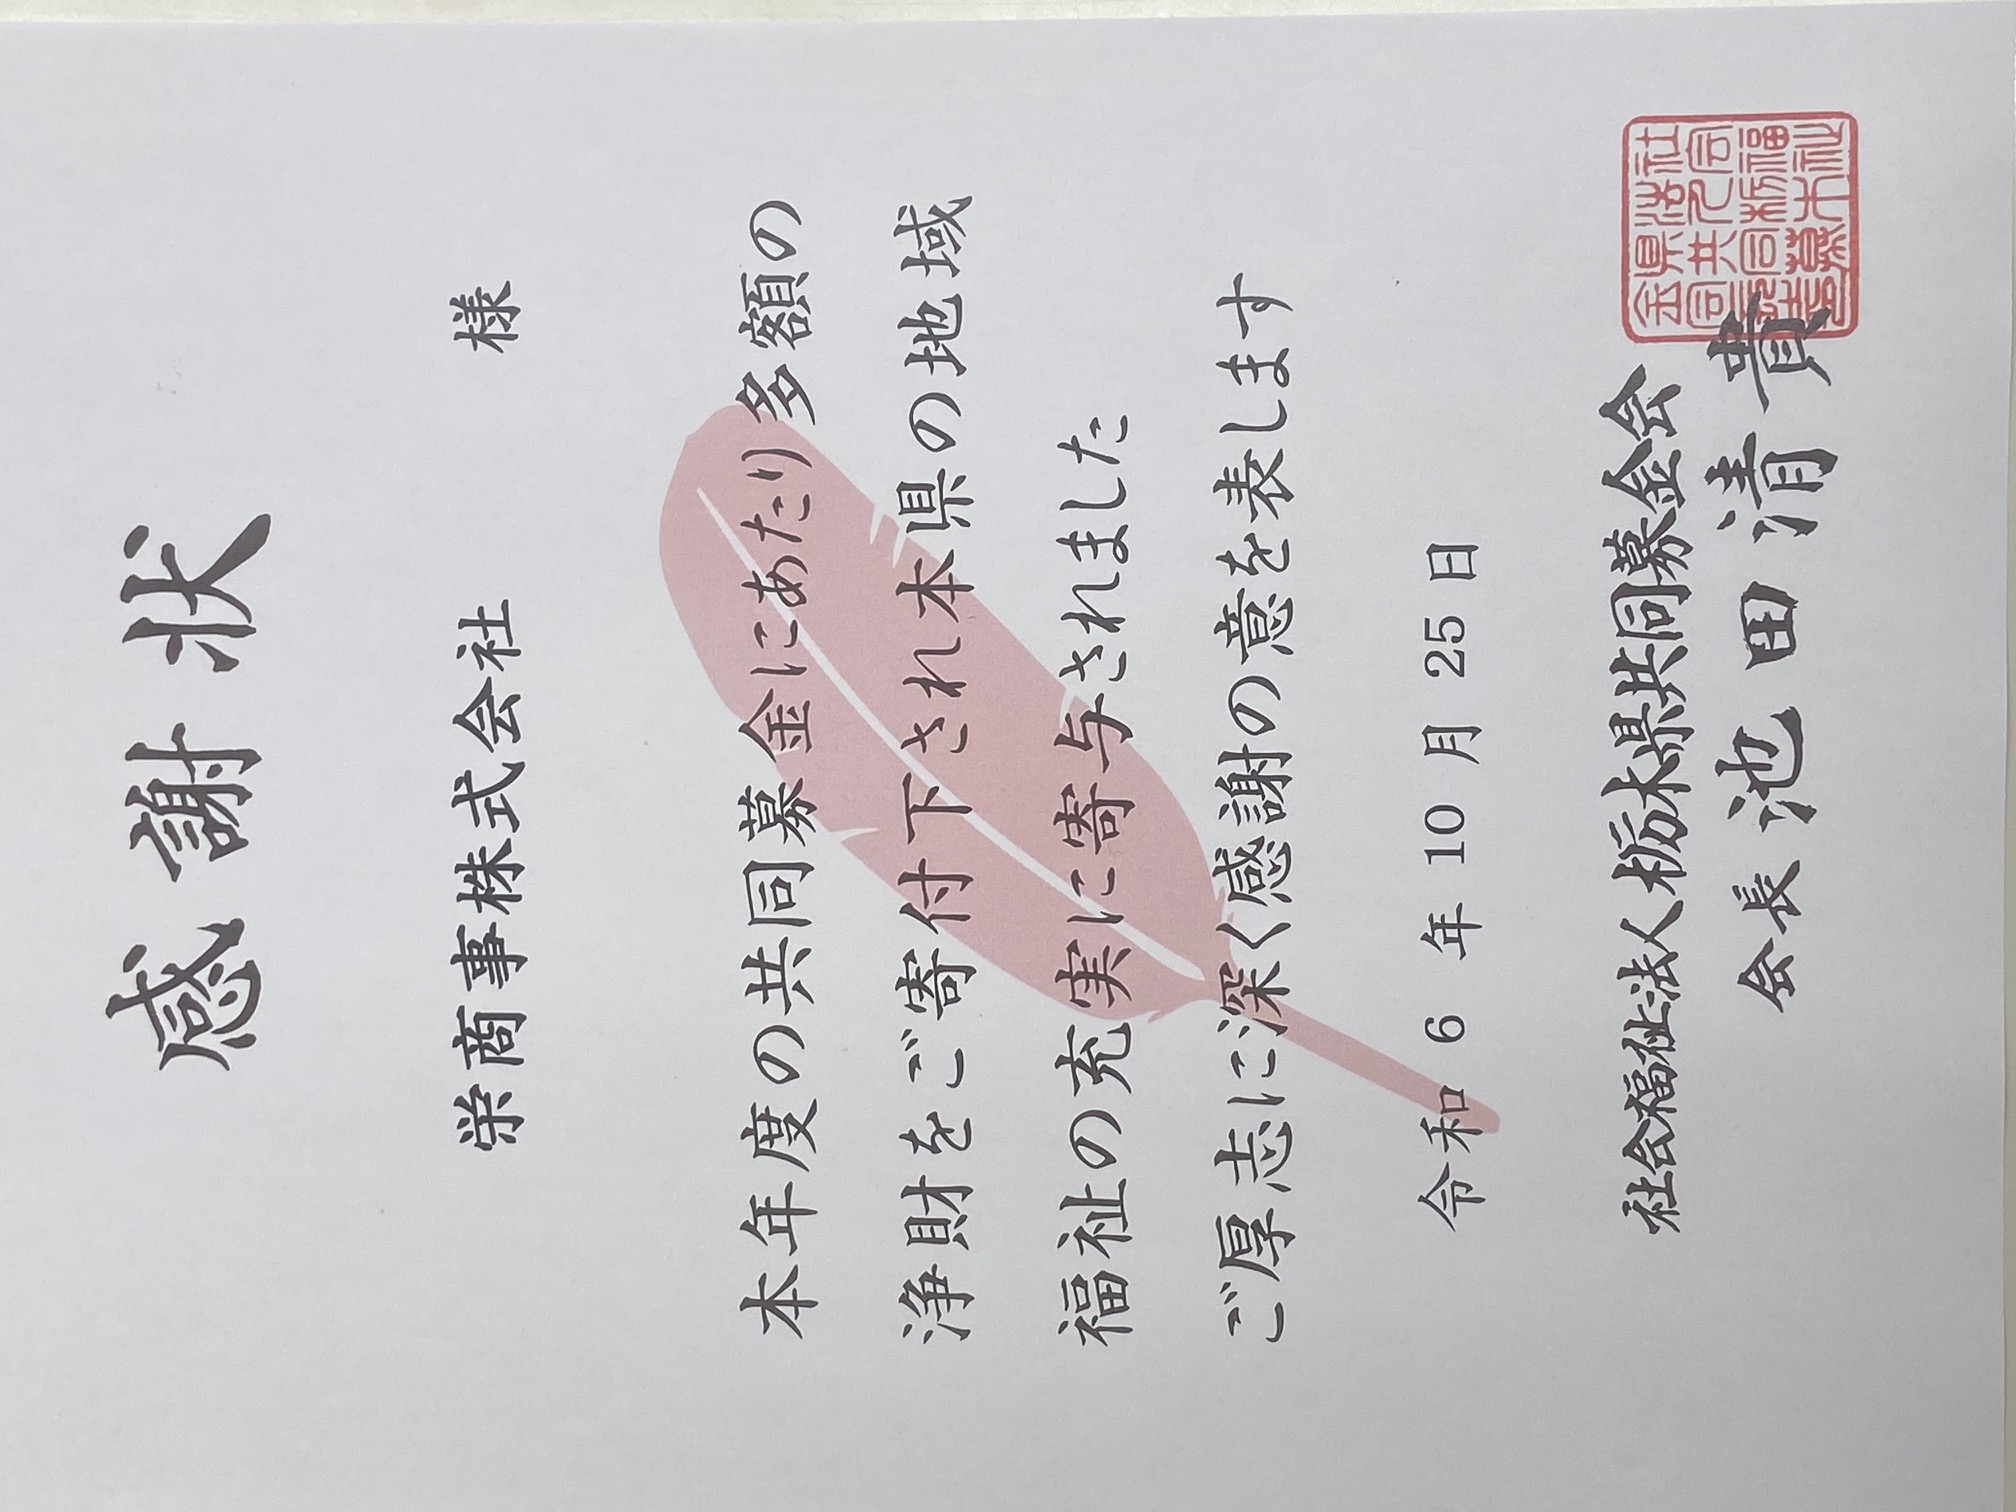 感謝状
栄商事株式会社 様
本年度の共同募金にあたり多額の
浄財をご寄付下され本県の地域
福祉の充実に寄与されました
ご厚志に深く感謝の意を表します
令和 6 年 10 月 25 日
社会福祉法人栃木県共同募金会
会長 池田清貴